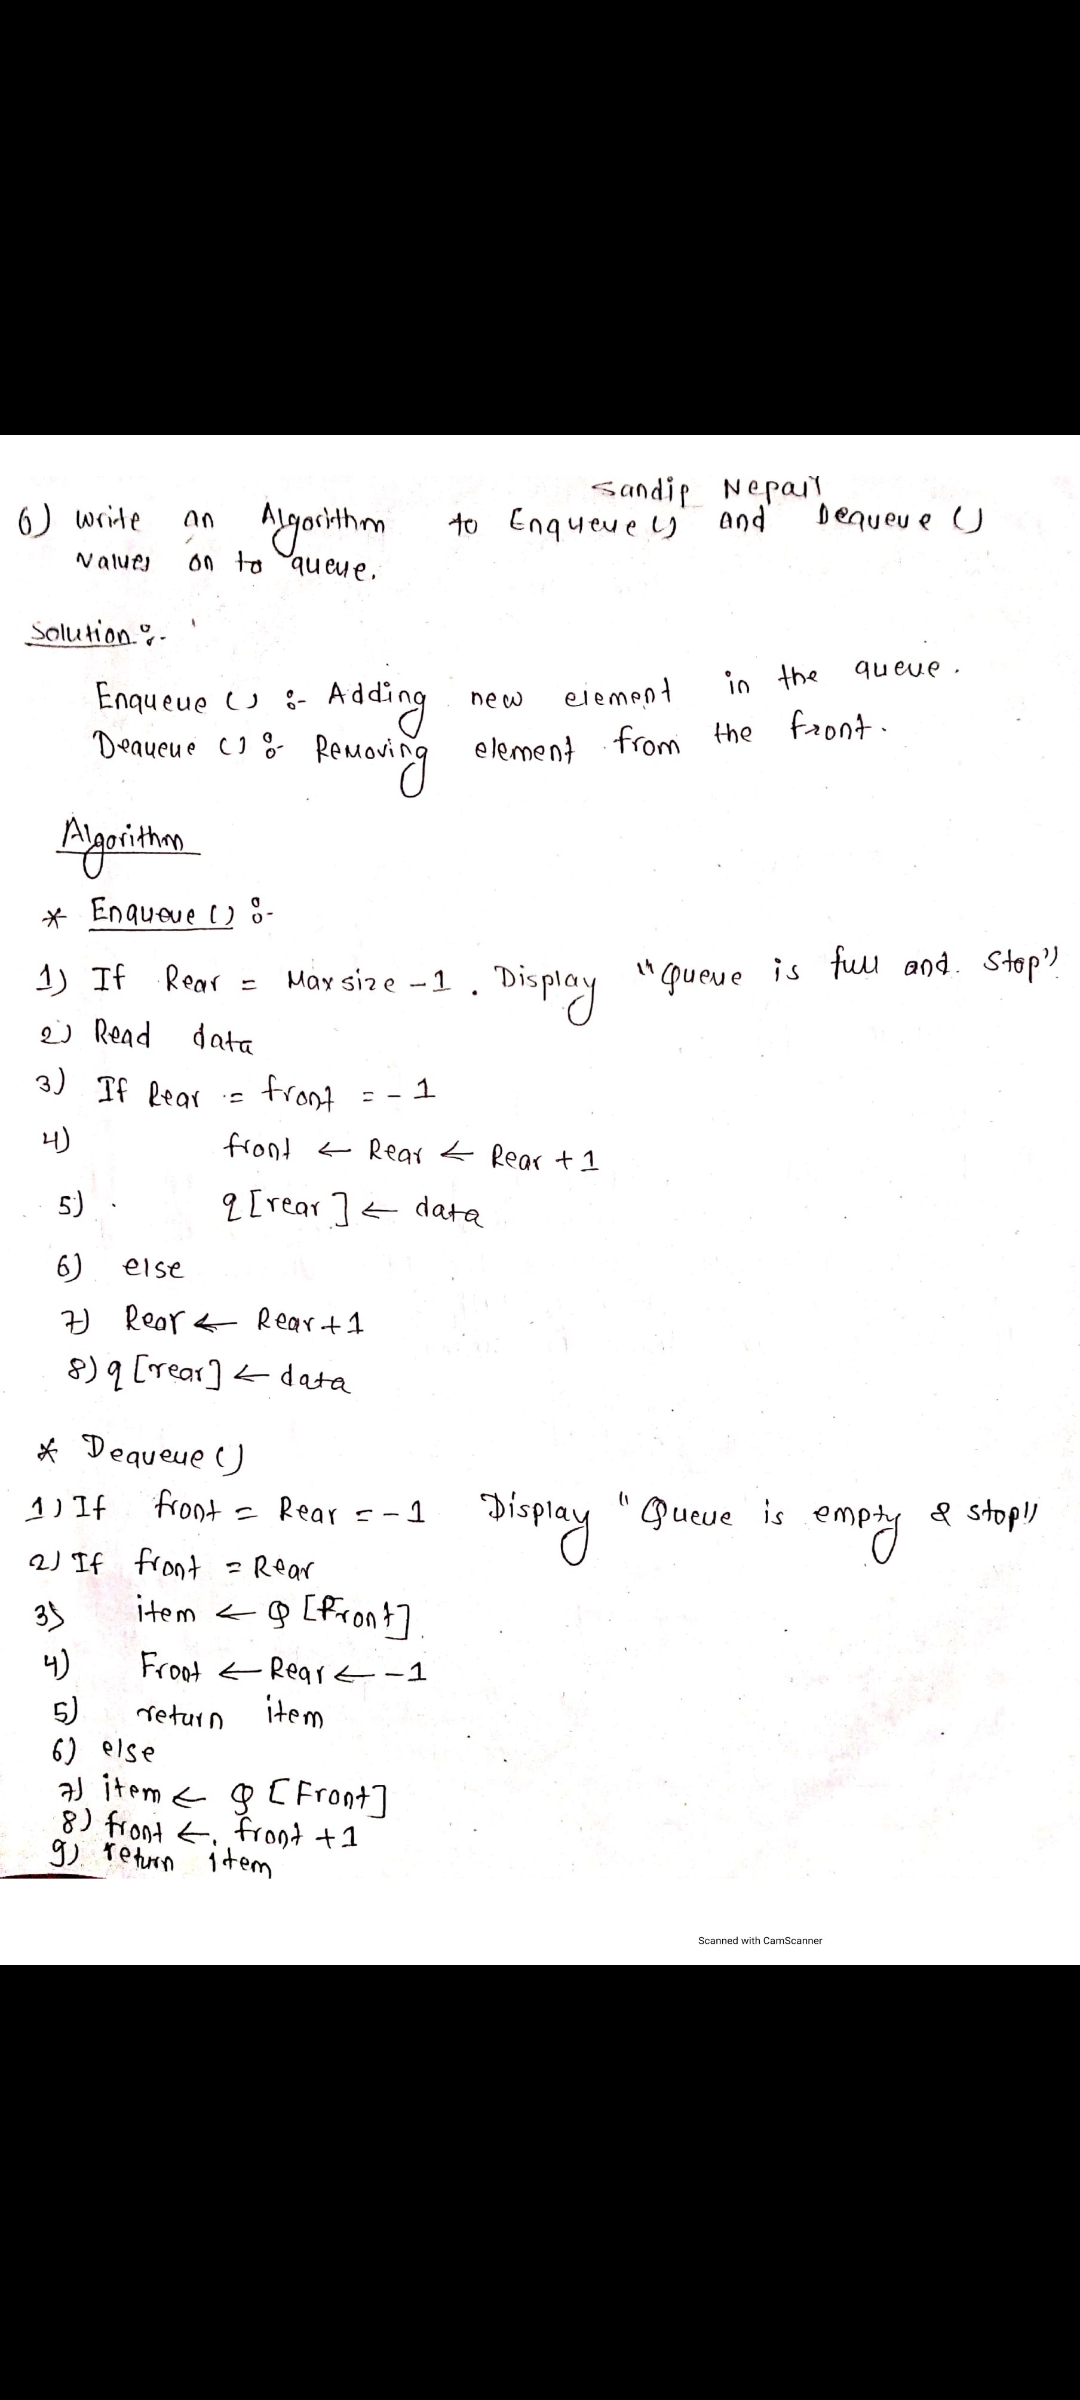 Sandip Nepali
6) Write an Algorithm to Enqueue () and Dequeue ()
values on to queue.
Solution :-
Enqueue () :- Adding new element in the queue.
Dequeue () :- Removing element from the front.
Algorithm
* Enqueue () :-
1) If Rear = Maxsize -1. Display "Queue is full and. Stop"
2) Read data
3) If Rear = front = -1
4) front ← Rear ← Rear +1
5) q[rear] ← data
6) else
7) Rear ← Rear+1
8) q[rear] ← data
* Dequeue ()
1) If front = Rear = -1 Display "Queue is empty & stop"
2) If front = Rear
3) item ← Q [Front]
4) Front ← Rear ← -1
5) return item
6) else
7) item ← Q [Front]
8) front ← front +1
9) return item
Scanned with CamScanner